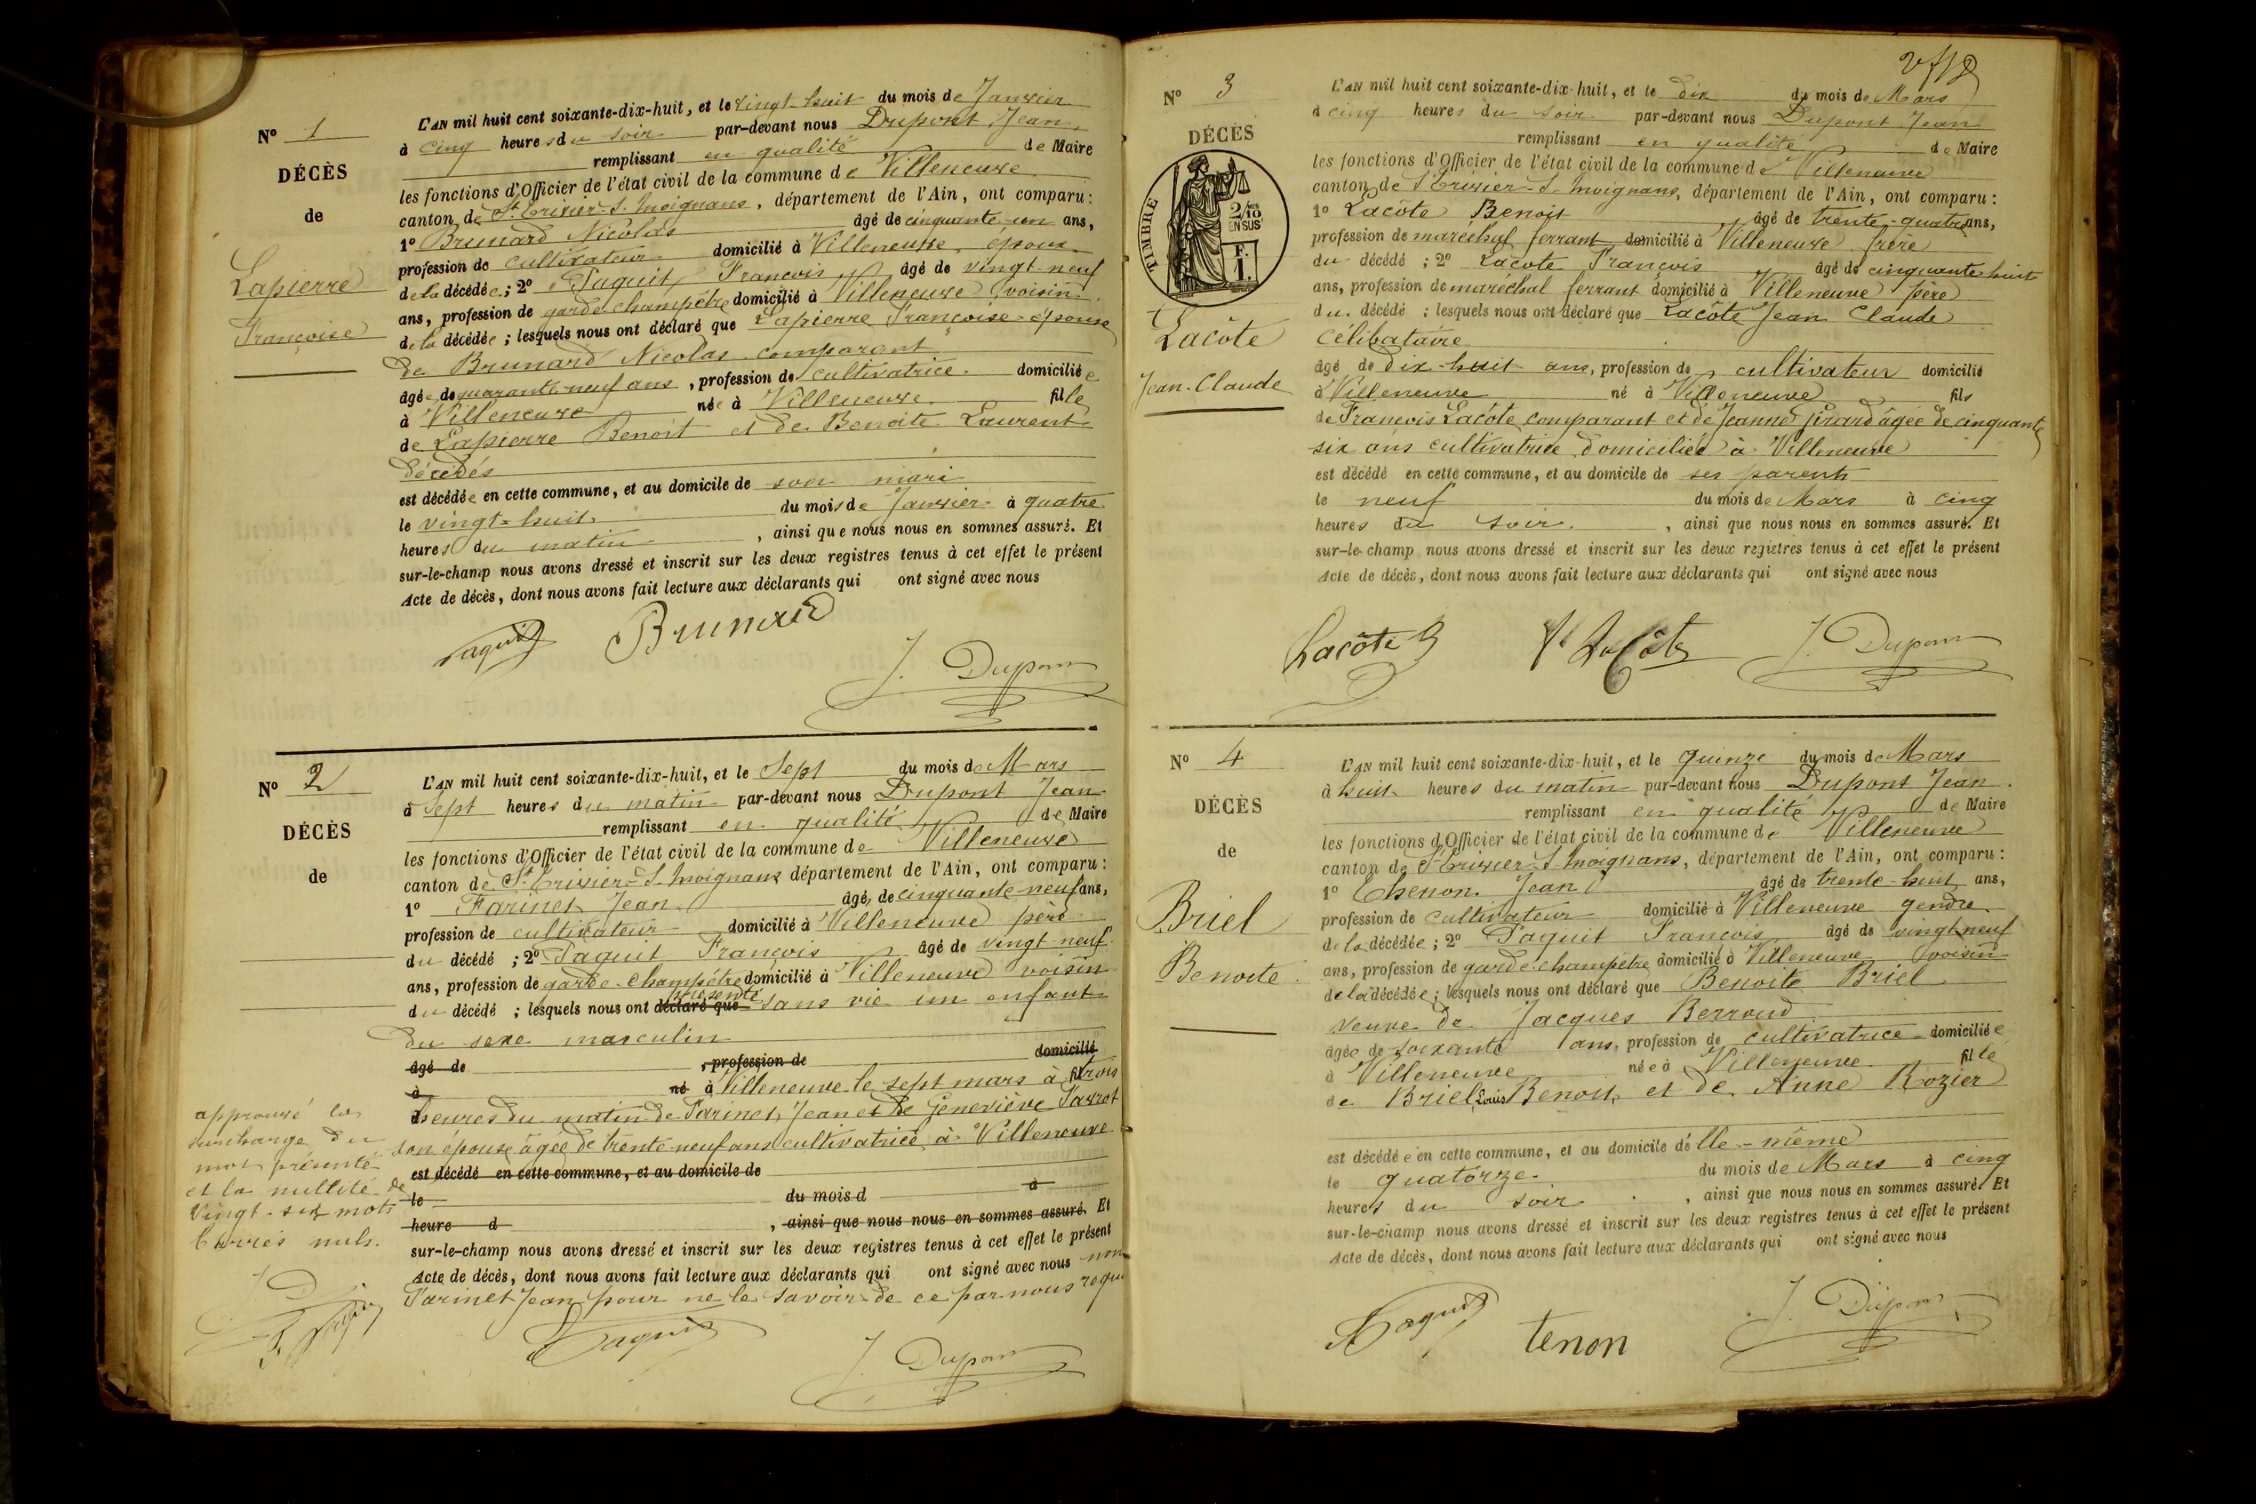 N° 1
DÉCÈS
de
Lapierre
Françoise
L'AN mil huit cent soixante-dix-huit, et le vingt-huit du mois de Janvier
à cinq heures du soir par-devant nous Dupont Jean,
remplissant en qualité de Maire
les fonctions d'Officier de l'état civil de la commune de Villeneuve
canton de St Trivier-S-Moignans, département de l'Ain, ont comparu :
1° Brunard Nicolas âgé de cinquante-un ans,
profession de cultivateur domicilié à Villeneuve, époux
de la décédée ; 2° Paquit François âgé de vingt-neuf
ans, profession de garde champêtre domicilié à Villeneuve voisin
de la décédée ; lesquels nous ont déclaré que Lapierre Françoise épouse
de Brunard Nicolas comparant
âgée de quarante-neuf ans, profession de cultivatrice domiciliée
à Villeneuve née à Villeneuve fille
de Lapierre Benoit et de Benoite Laurent
décédés
est décédée en cette commune, et au domicile de son mari
le vingt-huit du mois de Janvier à quatre
heures du matin, ainsi que nous nous en sommes assuré. Et
sur-le-champ nous avons dressé et inscrit sur les deux registres tenus à cet effet le présent
Acte de décès, dont nous avons fait lecture aux déclarants qui ont signé avec nous
Paquit Brunard
J. Dupont
N° 2
DÉCÈS
de
L'AN mil huit cent soixante-dix-huit, et le Sept du mois de Mars
à Sept heures du matin par-devant nous Dupont Jean
remplissant en qualité de Maire
les fonctions d'Officier de l'état civil de la commune de Villeneuve
canton de St Trivier-S-Moignans département de l'Ain, ont comparu :
1° Farinet Jean âgé de cinquante-neuf ans,
profession de cultivateur domicilié à Villeneuve père
du décédé ; 2° Paquit François âgé de vingt-neuf
ans, profession de garde-champêtre domicilié à Villeneuve voisin
présenté
du décédé ; lesquels nous ont déclaré que sans vie un enfant
du sexe masculin
âgé de , profession de domicilié
à né à Villeneuve le sept mars à fil trois
heures du matin de Farinet Jean et de Geneviève
son épouse âgée de trente-neuf ans cultivatrice à Villeneuve
est décédé en cette commune, et au domicile de
le du mois d à
heure d , ainsi que nous nous en sommes assuré. Et
sur-le-champ nous avons dressé et inscrit sur les deux registres tenus à cet effet le présent
Acte de décès, dont nous avons fait lecture aux déclarants qui ont signé avec nous non
Farinet Jean pour ne le savoir de ce par nous requis
approuvé la
surcharge du
mot présenté
et la nullité de
vingt-six mots
barrés nuls.
J. D
Paquit
J. Dupont
N° 3
DÉCÈS
TIMBRE
2/10
EN SUS
F.
1.
Lacôte
Jean-Claude
L'AN mil huit cent soixante-dix-huit, et le dix du mois de Mars
à cinq heures du soir par-devant nous Dupont Jean
remplissant en qualité de Maire
les fonctions d'Officier de l'état civil de la commune de Villeneuve
canton de St Trivier-S-Moignans, département de l'Ain, ont comparu :
1° Lacôte Benoit âgé de trente-quatre ans,
profession de maréchal ferrant domicilié à Villeneuve frère
du décédé ; 2° Lacôte François âgé de cinquante huit
ans, profession de maréchal ferrant domicilié à Villeneuve père
du décédé ; lesquels nous ont déclaré que Lacôte Jean Claude
célibataire
âgé de dix-huit ans, profession de cultivateur domicilié
à Villeneuve né à Villeneuve fils
de François Lacôte comparant et de Jeanne Girard âgée de cinquante
six ans cultivatrice domiciliée à Villeneuve
est décédé en cette commune, et au domicile de ses parents
le neuf du mois de Mars à cinq
heures du soir, ainsi que nous nous en sommes assuré. Et
sur-le-champ nous avons dressé et inscrit sur les deux registres tenus à cet effet le présent
Acte de décès, dont nous avons fait lecture aux déclarants qui ont signé avec nous
Lacôte B Lacôte J. Dupont
N° 4
DÉCÈS
de
Briel
Benoite
L'AN mil huit cent soixante-dix-huit, et le quinze du mois de Mars
à huit heures du matin par-devant nous Dupont Jean
remplissant en qualité de Maire
les fonctions d'Officier de l'état civil de la commune de Villeneuve
canton de St Trivier-S-Moignans, département de l'Ain, ont comparu :
1° Thenon Jean âgé de trente-huit ans,
profession de cultivateur domicilié à Villeneuve gendre
de la décédée ; 2° Paquit François âgé de vingt-neuf
ans, profession de garde-champêtre domicilié à Villeneuve voisin
de la décédée ; lesquels nous ont déclaré que Benoite Briel
veuve de Jacques Berroud
âgée de soixante ans, profession de cultivatrice domiciliée
à Villeneuve née à Villeneuve fille
de Briel Louis Benoit et de Anne Rozier
est décédée en cette commune, et au domicile d'elle-même
le quatorze du mois de Mars à cinq
heures du soir, ainsi que nous nous en sommes assuré. Et
sur-le-champ nous avons dressé et inscrit sur les deux registres tenus à cet effet le présent
Acte de décès, dont nous avons fait lecture aux déclarants qui ont signé avec nous
Paquit tenon J. Dupont